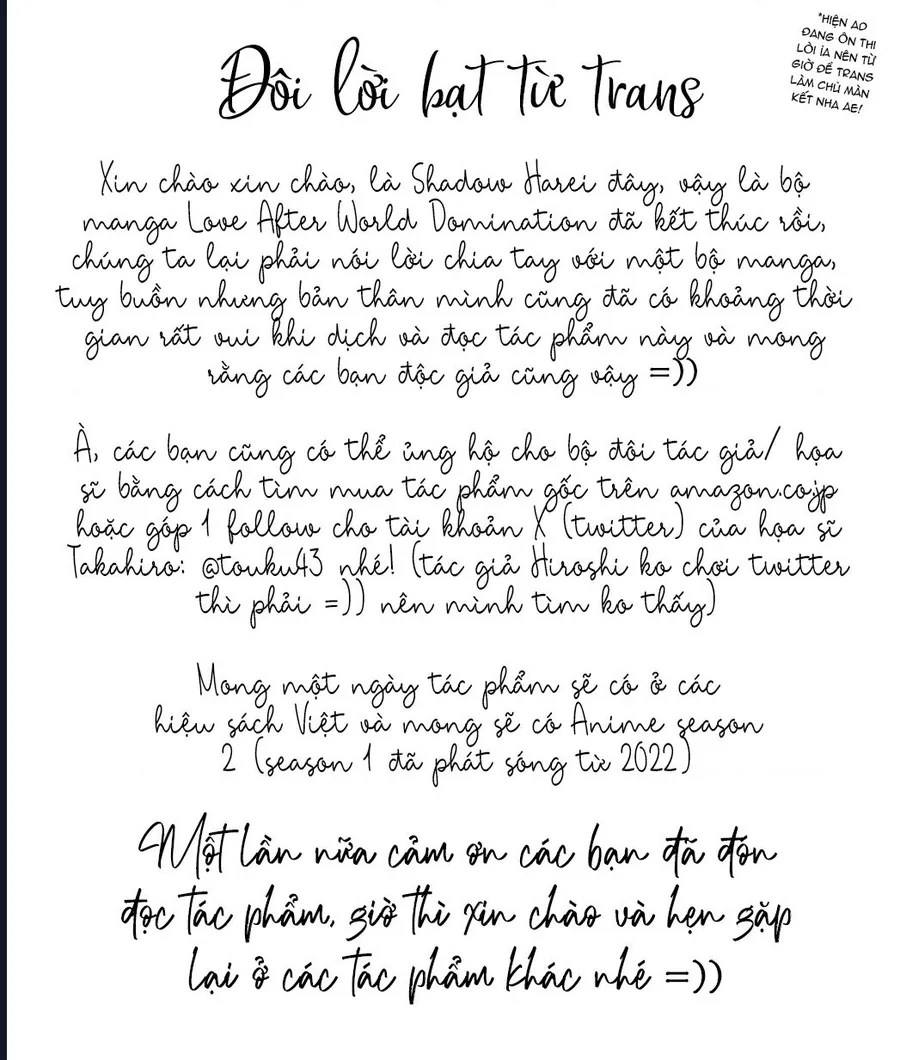 *HIỆN AD
ĐANG ÔN THI
LÒI ỈA NÊN TỪ
GIỜ ĐỂ TRANS
LÀM CHỦ MÀN
KẾT NHA AE!
Đôi lời bạt từ trans
Xin chào xin chào, là Shadow Harei đây, vậy là bộ
manga Love After World Domination đã kết thúc rồi,
chúng ta lại phải nói lời chia tay với một bộ manga,
tuy buồn nhưng bản thân mình cũng đã có khoảng thời
gian rất vui khi dịch và đọc tác phẩm này và mong
rằng các bạn độc giả cũng vậy =))
À, các bạn cũng có thể ủng hộ cho bộ đôi tác giả/ họa
sĩ bằng cách tìm mua tác phẩm gốc trên amazon.co.jp
hoặc góp 1 follow cho tài khoản X (twitter) của họa sĩ
Takahiro: @touku43 nhé! (tác giả Hiroshi ko chơi twitter
thì phải =)) nên mình tìm ko thấy)
Mong một ngày tác phẩm sẽ có ở các
hiệu sách Việt và mong sẽ có Anime season
2 (season 1 đã phát sóng từ 2022)
Một lần nữa cảm ơn các bạn đã đón
đọc tác phẩm, giờ thì xin chào và hẹn gặp
lại ở các tác phẩm khác nhé =))